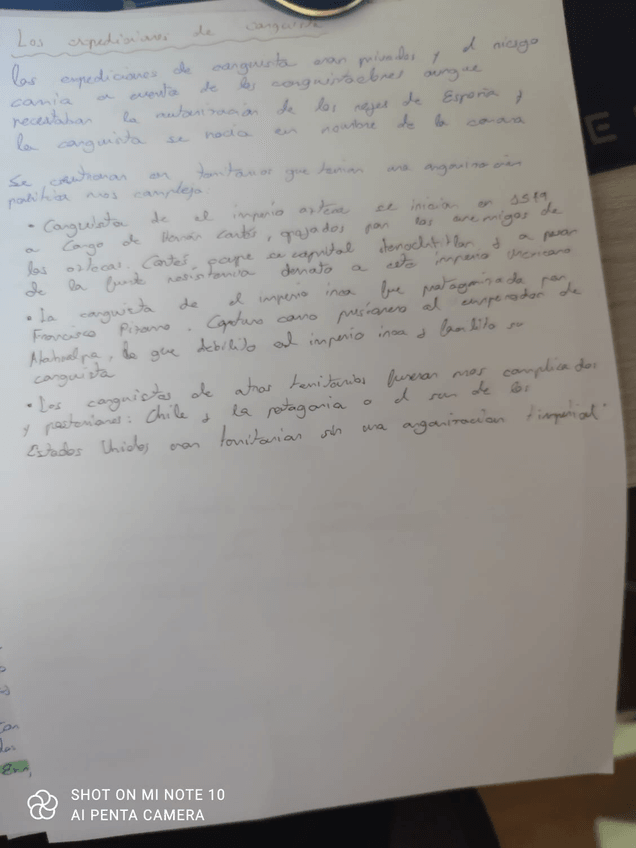 Los expediciones de conquista
Las expediciones de conquista eran privadas y el riesgo
corria a cuenta de los conquistadores aunque
necesitaban la autorización de los reyes de España y
la conquista se hacia en nombre de la corona
Se centraron en territorios que tenian una organización
política mas compleja:
• Conquista de el imperio azteca se inicia en 1519
a cargo de Hernán Cortés, apoyados por los enemigos de
los aztecas. Cortés ocupe su capital tenochtitlan y a pesar
de la fuerte resistencia derroto a este imperio Mexicano
• La conquista de el imperio inca fue protagonizada por
Francisco Pizarro. Capturo como prisionero al emperador
Atahualpa, lo que debilito al imperio inca y facilito su
conquista
• Los conquistas de otros territorios fueron mas complicados
y posteriores: Chile y la patagonia o el sur de los
Estados Unidos eran territorios sin una organización "imperial"
Era,
E
SHOT ON MI NOTE 10
AI PENTA CAMERA